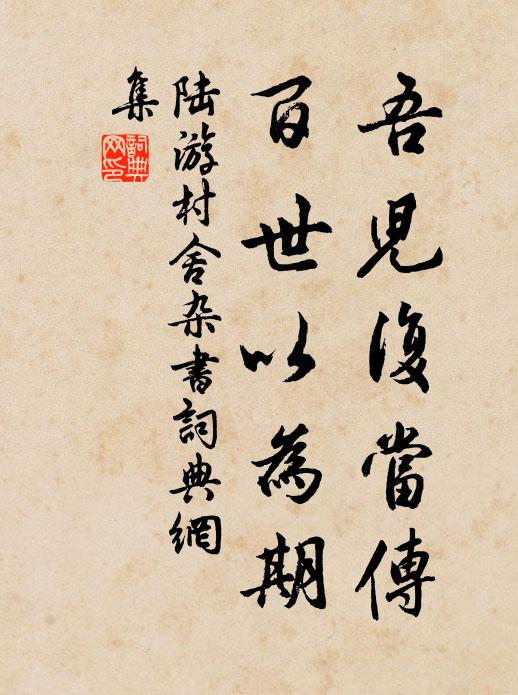 吾児復當傳
百世以為期
陸游村舍杂書詞典網
集
詞典
网印